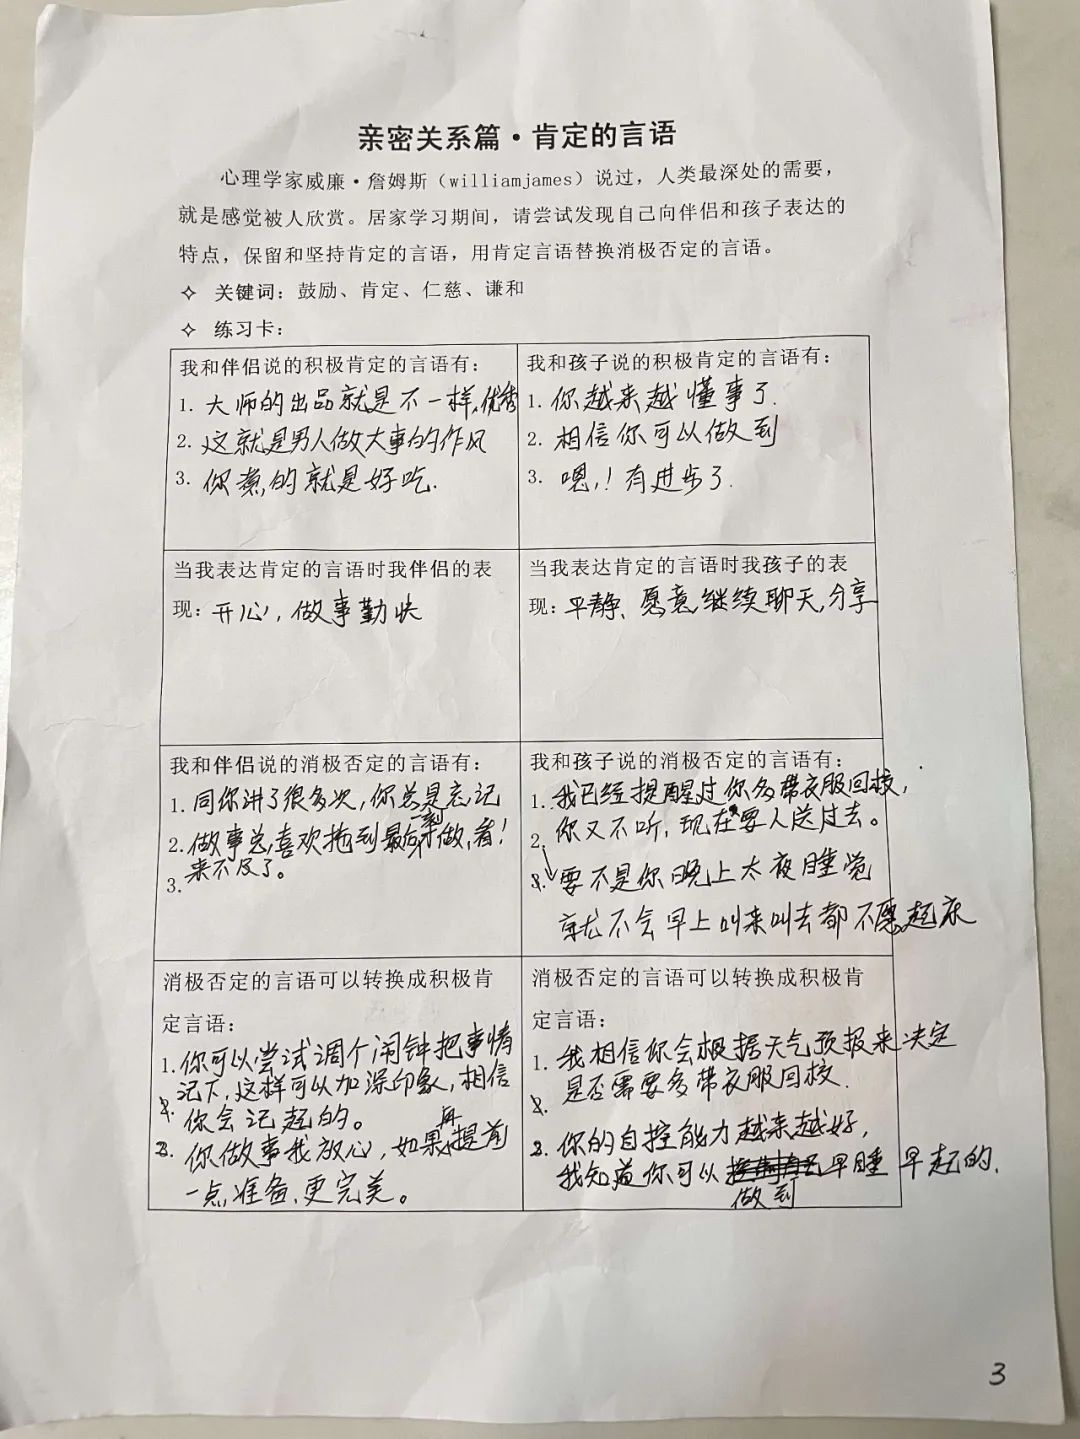 亲密关系篇·肯定的言语
心理学家威廉·詹姆斯（williamjames）说过，人类最深处的需要，
就是感觉被人欣赏。居家学习期间，请尝试发现自己向伴侣和孩子表达的
特点，保留和坚持肯定的言语，用肯定言语替换消极否定的言语。
✧ 关键词：鼓励、肯定、仁慈、谦和
✧ 练习卡：
我和伴侣说的积极肯定的言语有：
1. 大师的出品就是不一样，优秀
2. 这就是男人做大事的作风
3. 你煮的就是好吃.
我和孩子说的积极肯定的言语有：
1. 你越来越懂事了.
2. 相信你可以做到
3. 嗯，！有进步了.
当我表达肯定的言语时我伴侣的表
现：开心，做事勤快
当我表达肯定的言语时我孩子的表
现：平静、愿意继续聊天，分享
我和伴侣说的消极否定的言语有：
1. 同你讲了很多次，你总是忘记
2. 做事总喜欢拖到最后一刻才做，看！
来不及了。
3.
我和孩子说的消极否定的言语有：
1. 我已经提醒过你多带衣服回校，
2. 你又不听，现在要人送过去。
3. 要不是你晚上太夜睡觉
就不会早上叫来叫去都不愿起床
消极否定的言语可以转换成积极肯
定言语：
1. 你可以尝试调个闹钟把事情
记下，这样可以加深印象，相信
你会记起的。
2. 你做事我放心，如果再提前
一点准备，更完美。
消极否定的言语可以转换成积极肯
定言语：
1. 我相信你会根据天气预报来决定
是否需要多带衣服回校.
2. 你的自控能力越来越好，
我知道你可以做到早睡早起的.
3